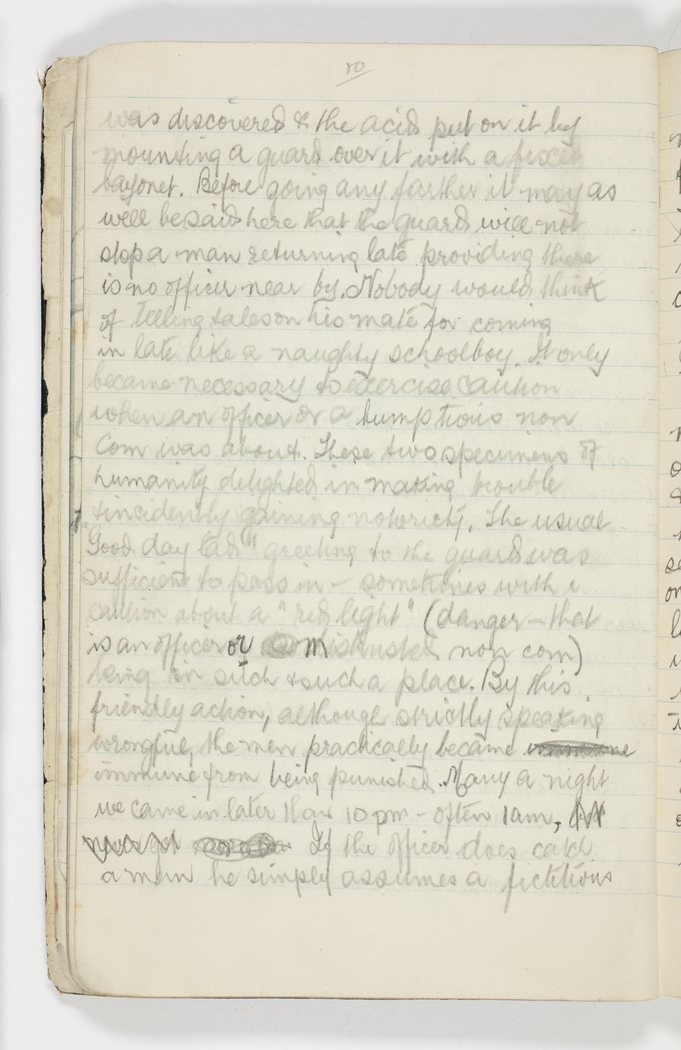 10
was discovered & the acid put on it by
mounting a guard over it with a fixed
bayonet. Before going any farther it may as
well be said here that the guard will not
stop a man returning late providing there
is no officer near by. Nobody would think
of telling tales on his mate for coming
in late like a naughty schoolboy. It only
became necessary to exercise caution
when an officer or a bumptious non
com was about. These two specimens of
humanity delighted in making trouble
& incidently gaining notoriety. The usual
"Good day lads" greeting to the guard was
sufficient to pass in – sometimes with a
caution about a "red light" (danger – that
is an officer or mistrusted non com)
being in sitch & such a place. By this
friendly action, although strictly speaking
wrongful, the men practically became
immune from being punished. Many a night
we came in later than 10 pm – often 1am,
If the officer does catch
a man he simply assumes a fictitious